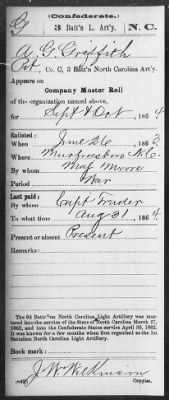 (Confederate.)
G 3 Batt'n L. Art'y. N.C.
A G Griffith
Pvt, Co. C, 3 Batt'n North Carolina Art'y.
Appears on
Company Muster Roll
of the organization named above,
for Sept & Oct, 1864
Enlisted:
When June 26, 1863
Where Murfreesboro N.C.
By whom Maj Moore
Period War
Last paid:
By whom Capt
To what time Aug 31, 1864
Present or absent Present
Remarks:
The 3d Batt'on North Carolina Light Artillery was mustered into the service of the State of North Carolina March 27, 1862, and into the Confederate States service April 30, 1862. It was known for a few months when first organized as the 1st Battalion North Carolina Light Artillery.
Book mark:
J. W. Wilkinson
(642) Copyist.